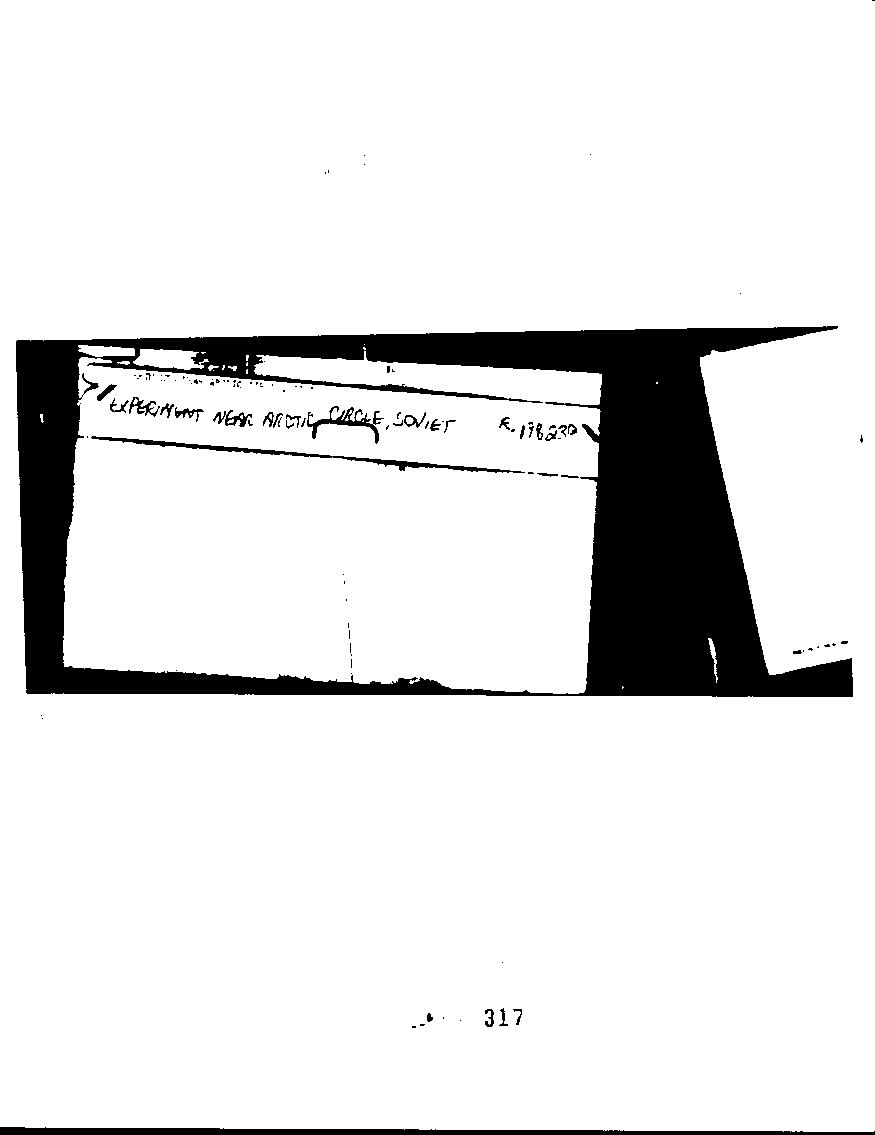 EXPERIMENT NEAR ARCTIC CIRCLE, SOVIET R. 198230
317